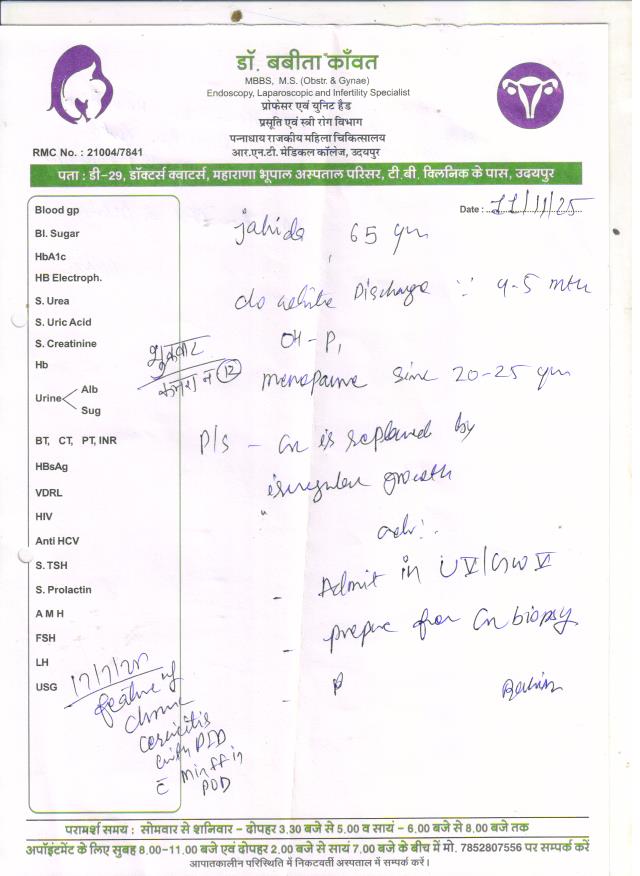 डॉ. बबीता काँवत
MBBS, M.S. (Obstr. & Gynae)
Endoscopy, Laparoscopic and Infertility Specialist
प्रोफेसर एवं युनिट हैड
प्रसूति एवं स्त्री रोग विभाग
पन्नाधाय राजकीय महिला चिकित्सालय
आर.एन.टी. मेडिकल कॉलेज, उदयपुर
RMC No. : 21004/7841
पता : डी-29, डॉक्टर्स क्वाटर्स, महाराणा भूपाल अस्पताल परिसर, टी.बी. क्लिनिक के पास, उदयपुर
Date : 11/11/25
jahida, 65 ym
c/o white Discharge ∵ 4-5 mth
OH - P1
menopause since 20-25 ym
P/s - Cx is replaced by
irregular growth
adv:
- Admit in U V/GW V
- prepare for Cx biopsy
शुक्रवार
कमरा न 12
Blood gp
Bl. Sugar
HbA1c
HB Electroph.
S. Urea
S. Uric Acid
S. Creatinine
Hb
Urine Alb
Sug
BT, CT, PT, INR
HBsAg
VDRL
HIV
Anti HCV
S. TSH
S. Prolactin
A M H
FSH
LH
USG
feature of
chronic
cervicitis
PID
c̄ min ff in
POD
परामर्श समय : सोमवार से शनिवार - दोपहर 3.30 बजे से 5.00 व सायं - 6.00 बजे से 8.00 बजे तक
अपॉइंटमेंट के लिए सुबह 8.00-11.00 बजे एवं दोपहर 2.00 बजे से सायं 7.00 बजे के बीच में मो. 7852807556 पर सम्पर्क करें
आपातकालीन परिस्थिति में निकटवर्ती अस्पताल में सम्पर्क करें।